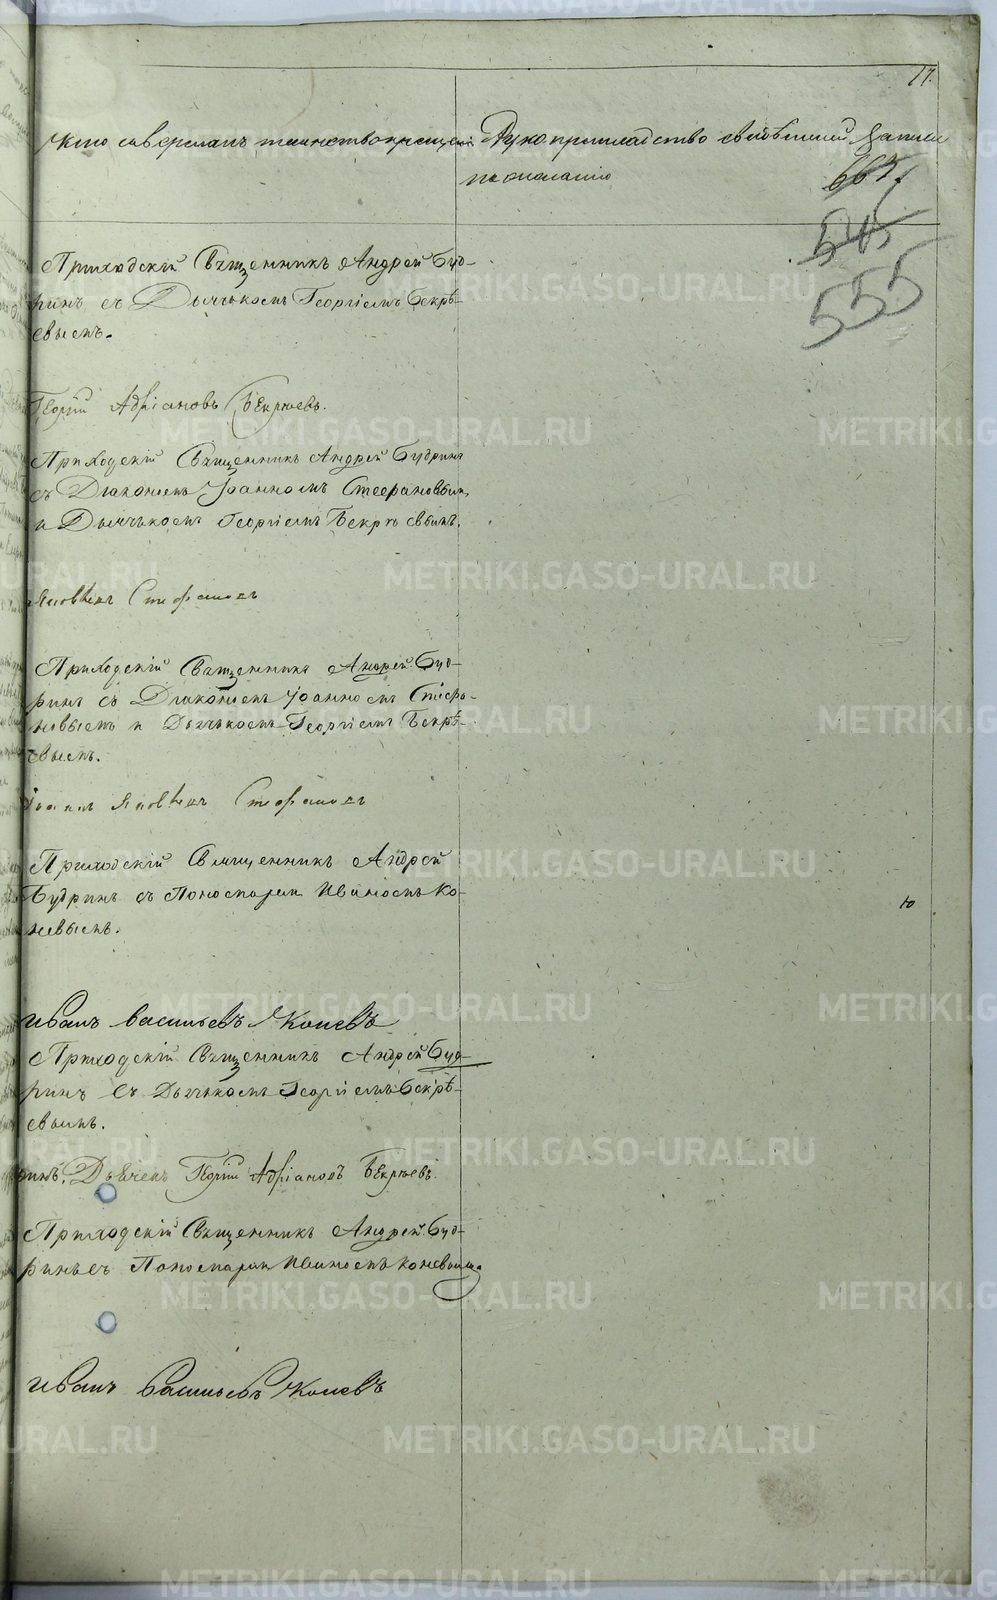 17.
Кто совершалъ таинство крещенiя
Рукоприкладство свидѣтелей записи
по желанiю
667.
545
555
Приходскiй Священникъ Андрей Буд-
ринъ съ Дьячькомъ Георгiемъ Бекрѣ-
евымъ.
Георгiй Адрiановъ Бекрѣевъ.
Приходскiй Священникъ Андрей Будринъ
съ Дiакономъ Iоанномъ Стефановымъ
и Дьячькомъ Георгiемъ Бекрѣевымъ.
Яковлев Стефановъ
Приходскiй Священникъ Андрей Буд-
ринъ съ Дiакономъ Iоанномъ Стефа-
новымъ и Дьячькомъ Георгiемъ Бекрѣ-
евымъ.
Iоанн Яковлевъ Стефановъ
Приходскiй Священникъ Андрей
Будринъ съ Пономаремъ Иваномъ Ко-
невымъ.
Иванъ Васильевъ Коневъ
Приходскiй Священникъ Андрей Буд-
ринъ съ Дьячькомъ Георгiемъ Бекрѣ-
евымъ.
Дьячекъ Георгiй Адрiановъ Бекрѣевъ.
Приходскiй Священникъ Андрей Буд-
ринъ съ Пономаремъ Иваномъ Коневымъ
Иванъ Васильевъ Коневъ
METRIKI.GASO-URAL.RU